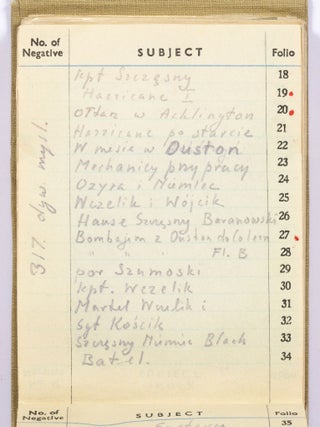 No. of Negative SUBJECT Folio
kpt Szczęsny 18
Hurricane I 19
Ołtarz w Acklington 20
Hurricane po starcie 21
W mesie w Ouston 22
Mechanicy przy pracy 23
Ozyra i Numiec 24
Wczelik i Wójcik 25
Hause Szczęsny Baranowski 26
z Ouston do 27
" " " Fl. B 28
por Szumoski 29
kpt. Wczelik 30
Martel Wczelik i 31
sgt Kościk 32
Szczęsny Black 33
Batel. 34
317. dyw. myśl.
No. of Negative SUBJECT Folio
35